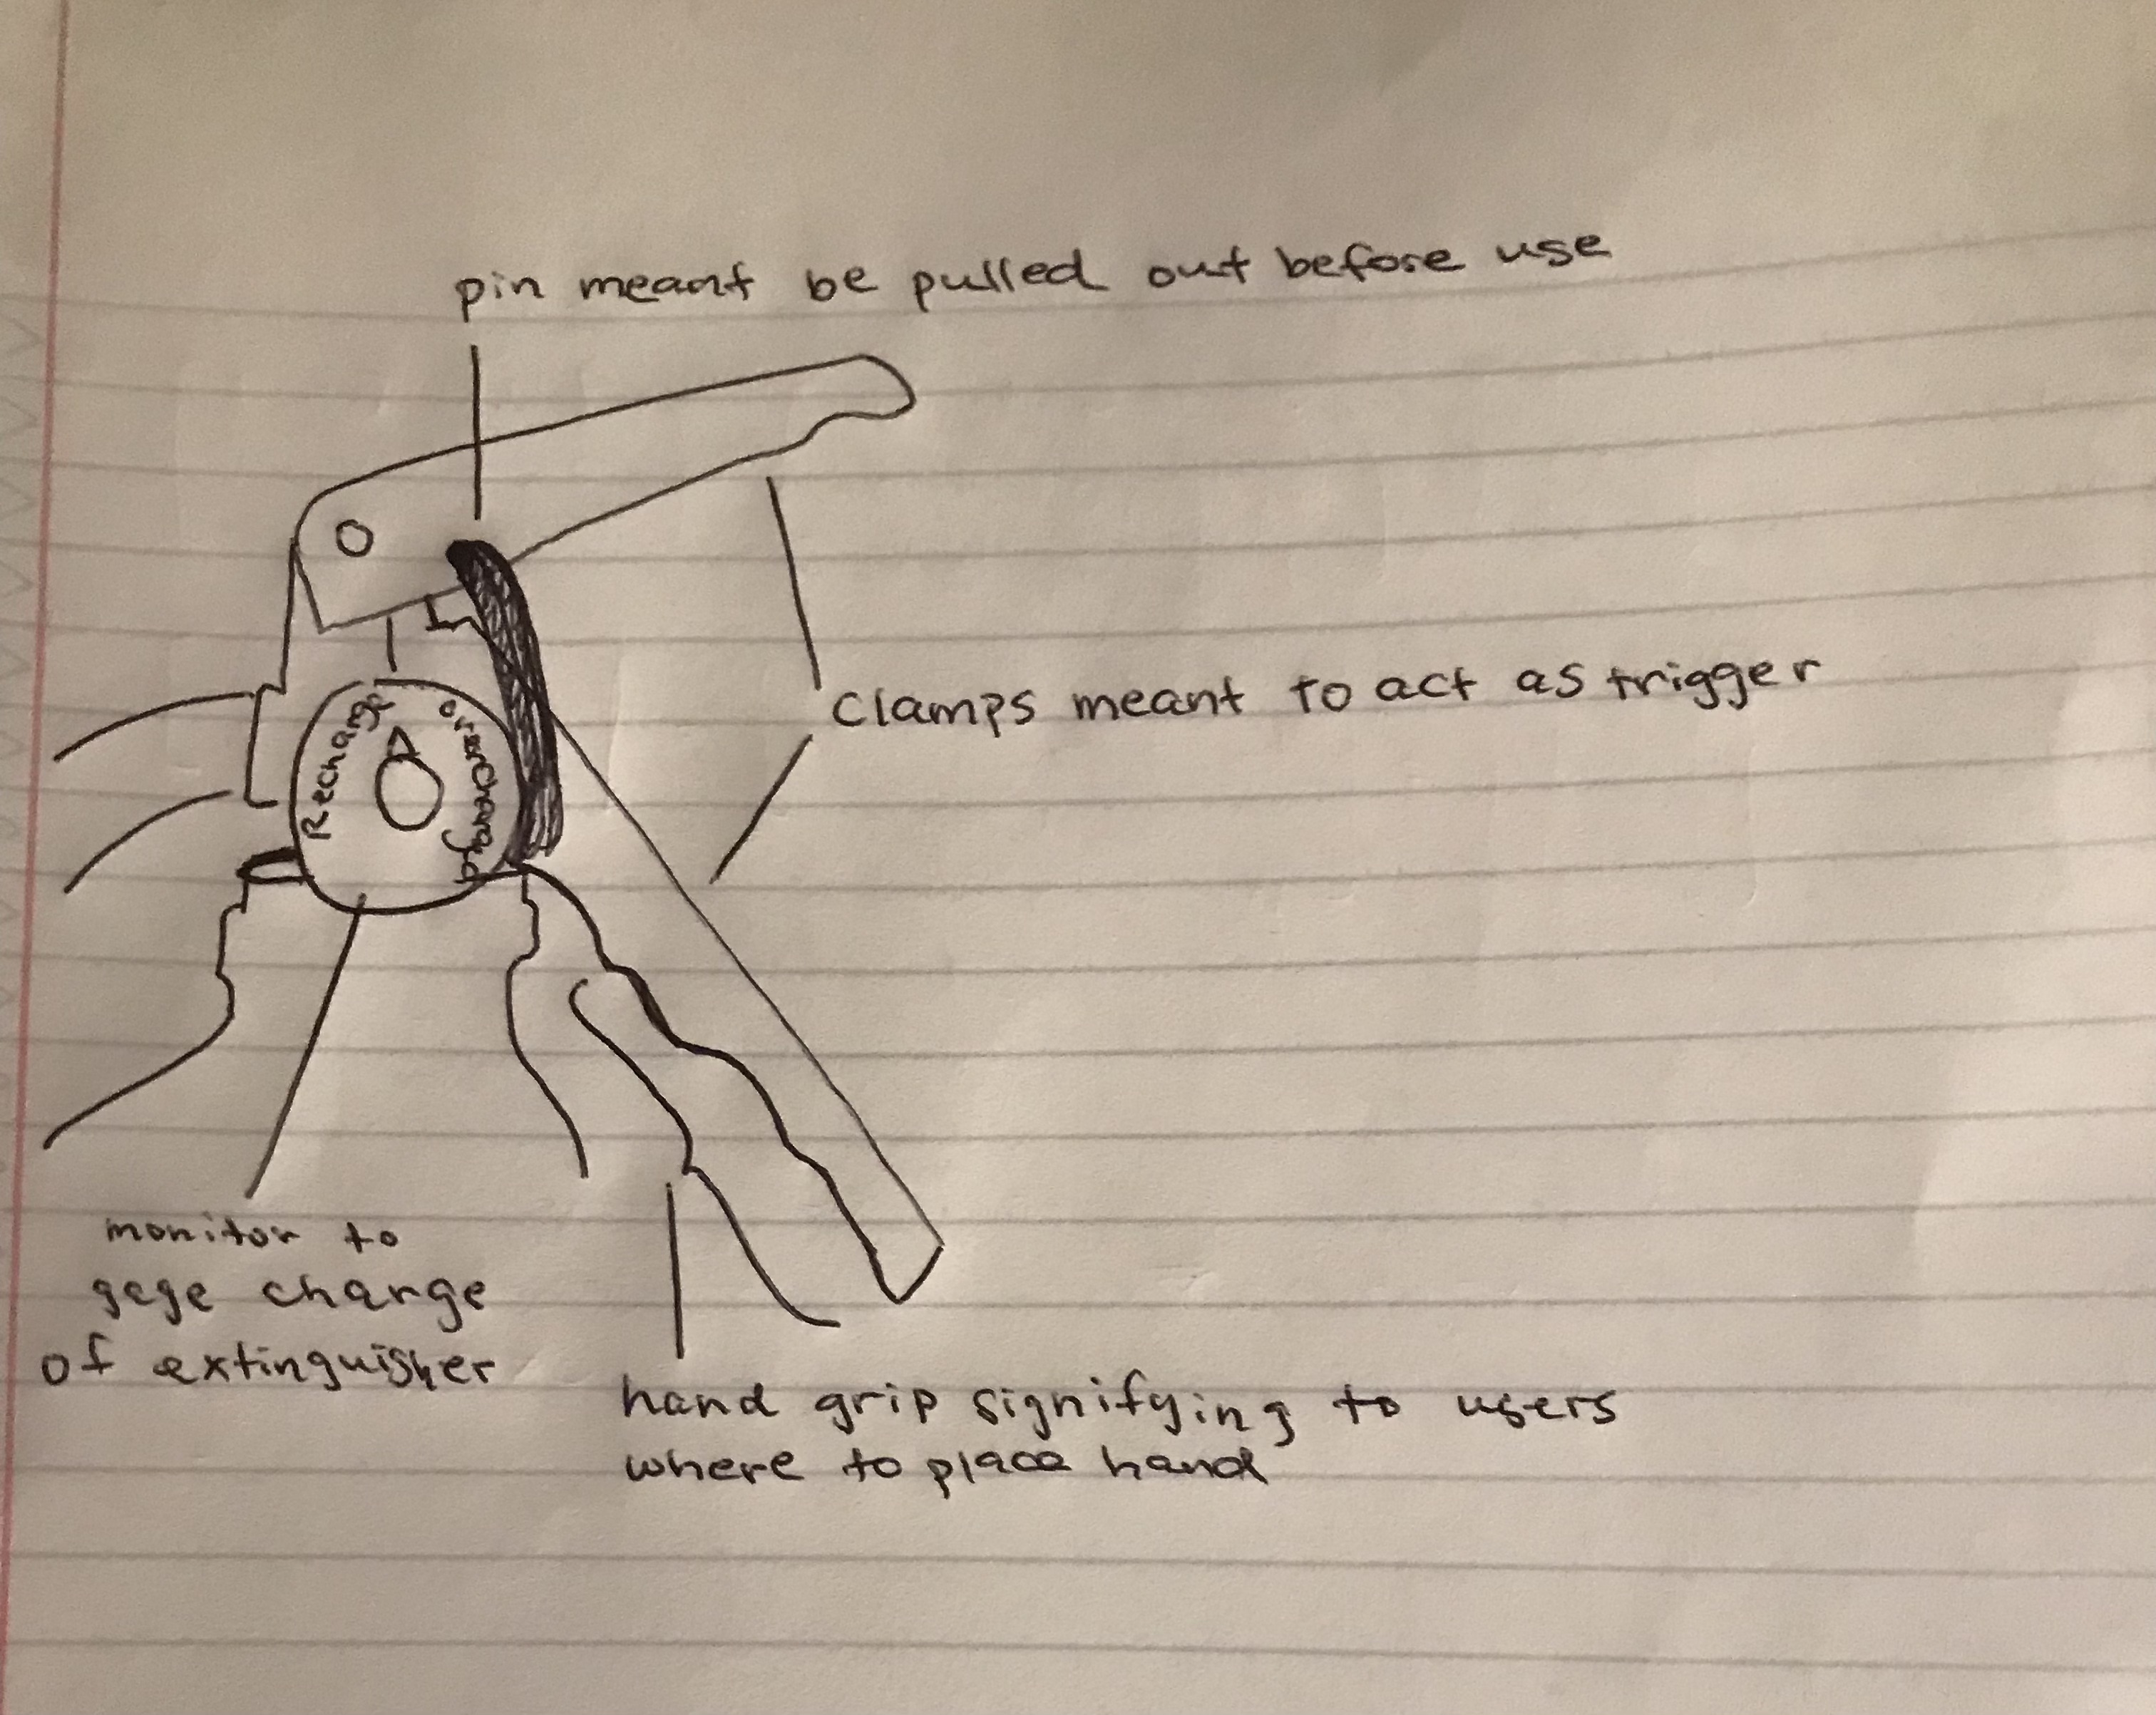 pin meant be pulled out before use
Clamps meant to act as trigger
Rechange
monitor to
gege charge
of extinguisher
hand grip signifying to users
where to place hand